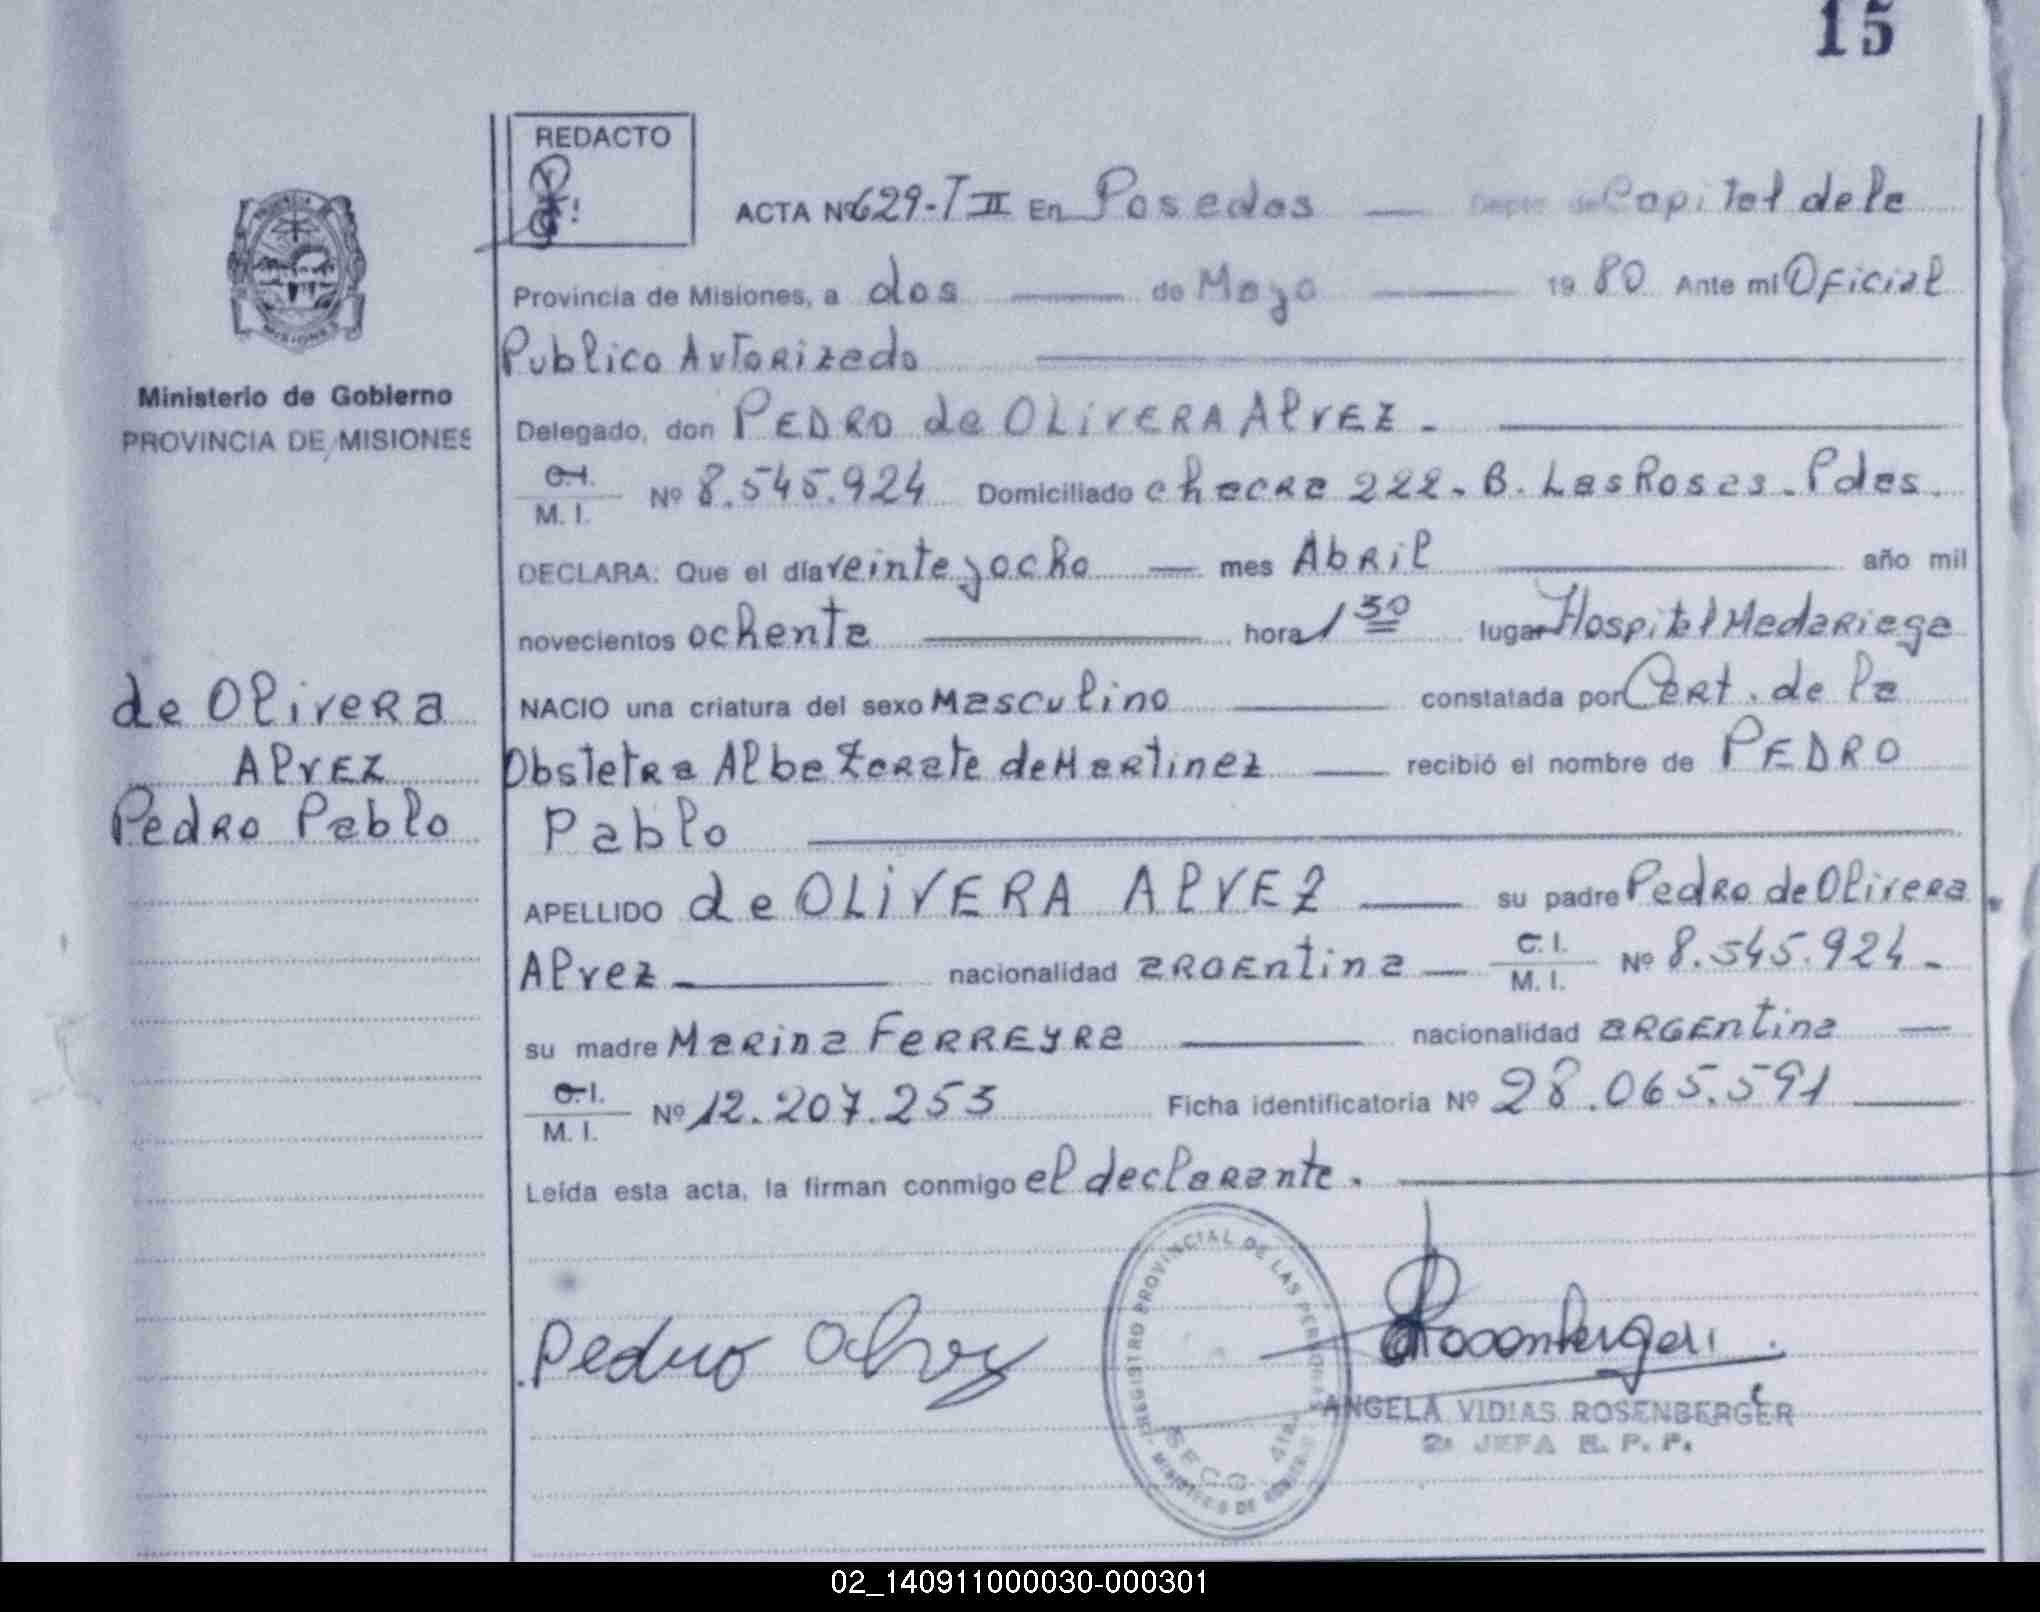 15
REDACTO
ACTA Nº 629-T II En Posadas Depto. de Capital de la
Provincia de Misiones, a dos de Mayo 1980 Ante mi Oficial
Publico Autorizado
Ministerio de Gobierno
PROVINCIA DE MISIONES
Delegado, don PEDRO de OLiVERA AlVEZ.
C.I.
M. I. Nº 8.545.924 Domiciliado chacra 222. B. Las Rosas. Pdas.
DECLARA: Que el día veinte y ocho mes Abril año mil
novecientos ochenta hora 1 30 lugar Hospital Madariaga
NACIO una criatura del sexo Masculino constatada por Cert. de la
Obstetra Alba Zarate de Martinez recibió el nombre de PEDRO
Pablo
de Olivera
Alvez
Pedro Pablo
APELLIDO de OLiVERA AlVEZ su padre Pedro de Olivera
Alvez nacionalidad argentina C.I.
M. I. Nº 8.545.924
su madre Marina Ferreyra nacionalidad argentina
C.I.
M. I. Nº 12.207.253 Ficha identificatoria Nº 28.065.591
Leída esta acta, la firman conmigo el declarante.
REGISTRO PROVINCIAL DE LAS PERSONAS
MINISTERIO DE GOBIERNO
SECC.
Pedro
ANGELA VIDIAS ROSENBERGER
2ª JEFA R. P. P.
02_140911000030-000301